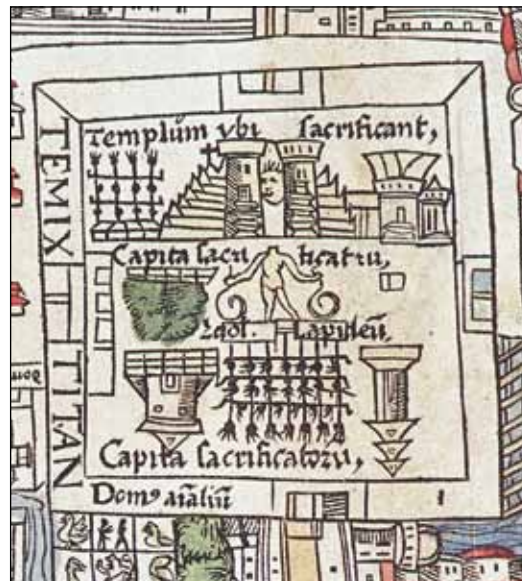 TEMIX
TITAN
Templum vbi sacrificant,
Capita sacri ficatrū,
Idol. Lapideū,
Capita sacrificatorū,
Domꝯ aīaliū